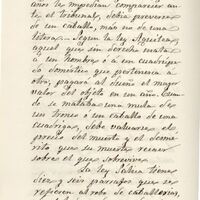 años les impedian comparecer an-
te el tribunal, debia proveerse
de un caballo, mas no de una
litera. Segun la ley Aquilia,
aquel que sin derecho mata
a un hombre o a un cuadrúpe-
do doméstico que pertenezca a
otro, pagará al dueño el mayor
valor del objeto en un año. Cuan-
do se mataba una mula de
un tronco o un caballo de una
cuadriga, debe valuarse el
precio del muerto y el demé-
rito que su muerte recaer
sobre el que sobrevive.
La ley Sálica tiene
diez y seis párrafos que se
refieren al robo de caballerías,